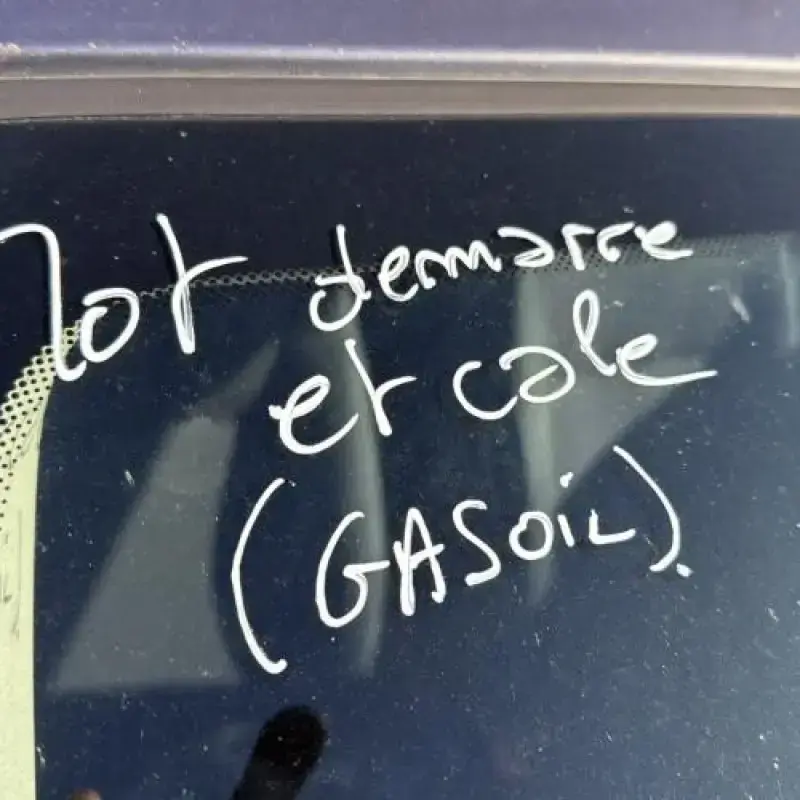 mot demarre
et cale
(GASOiL).